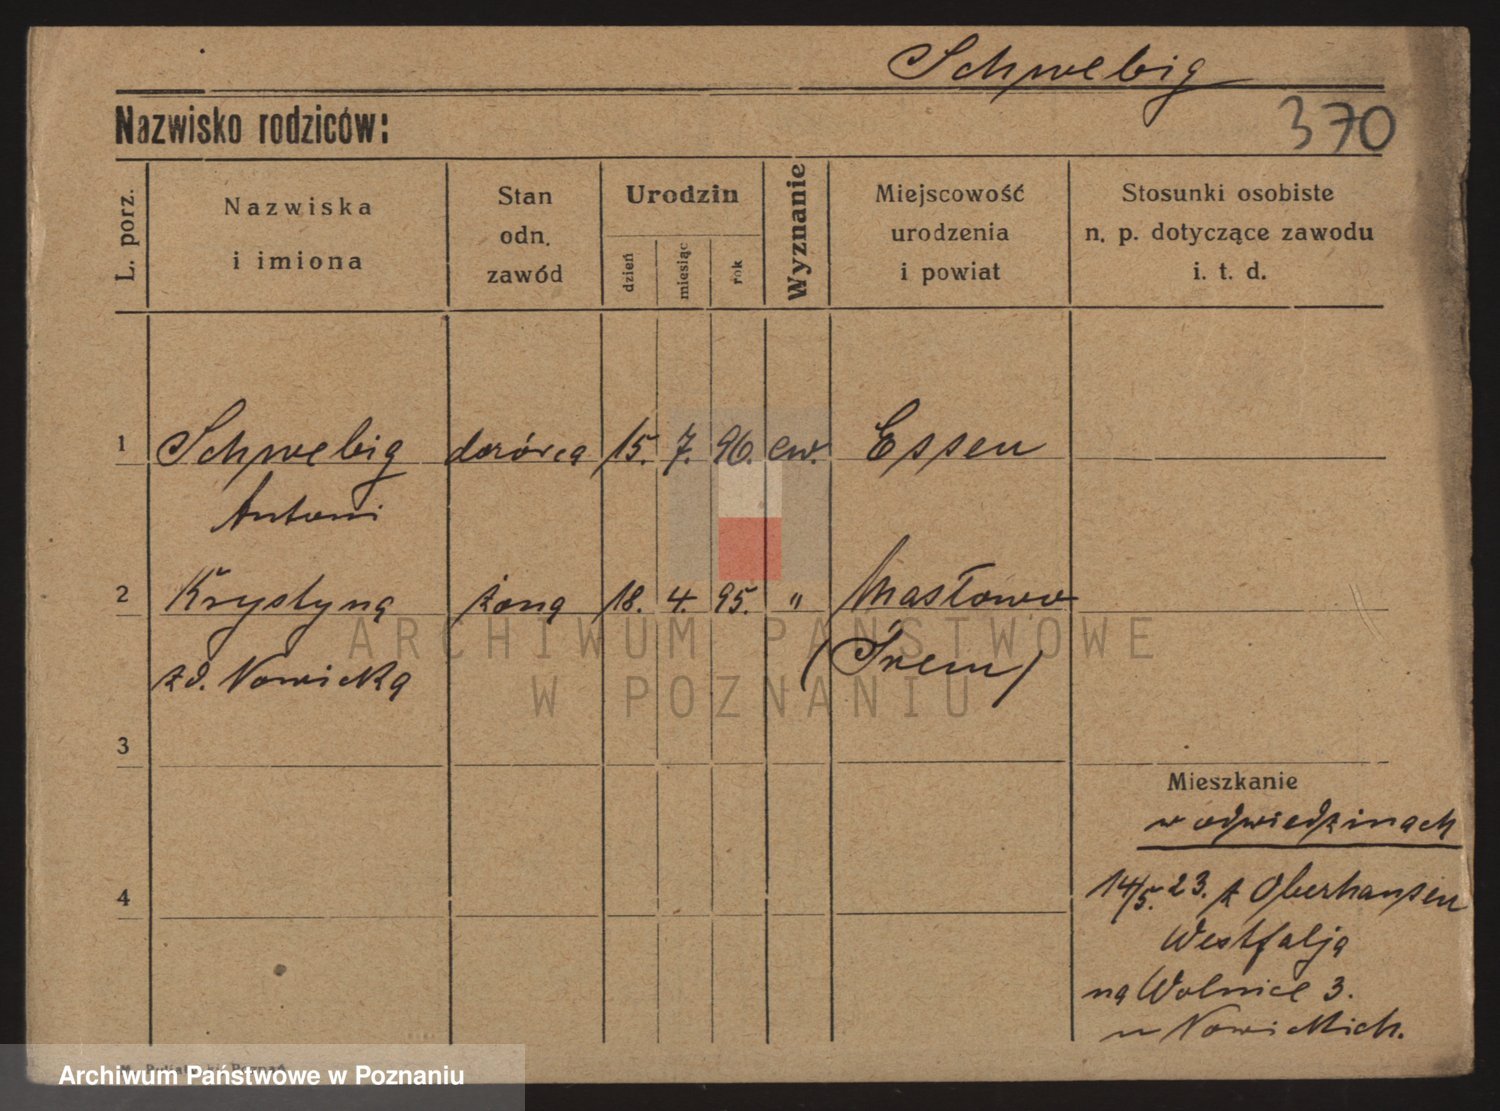 Schwebig
370
Nazwisko rodziców:
L. porz.
Nazwiska
i imiona
Stan
odn.
zawód
Urodzin
dzień
miesiąc
rok
Wyznanie
Miejscowość
urodzenia
i powiat
Stosunki osobiste
n. p. dotyczące zawodu
i. t. d.
1 Schwebig dozórca 15. 7. 96. ew. Essen
Antoni
2 Krystyna żona 18. 4. 95. " Masłowo
zd. Nowicka (Śrem)
3
Mieszkanie
w odwiedzinach
4
14/5. 23. z Oberhausen
Westfalja
na Wolnice 3.
u Nowickich.
ARCHIWUM PAŃSTWOWE
W POZNANIU
Archiwum Państwowe w Poznaniu